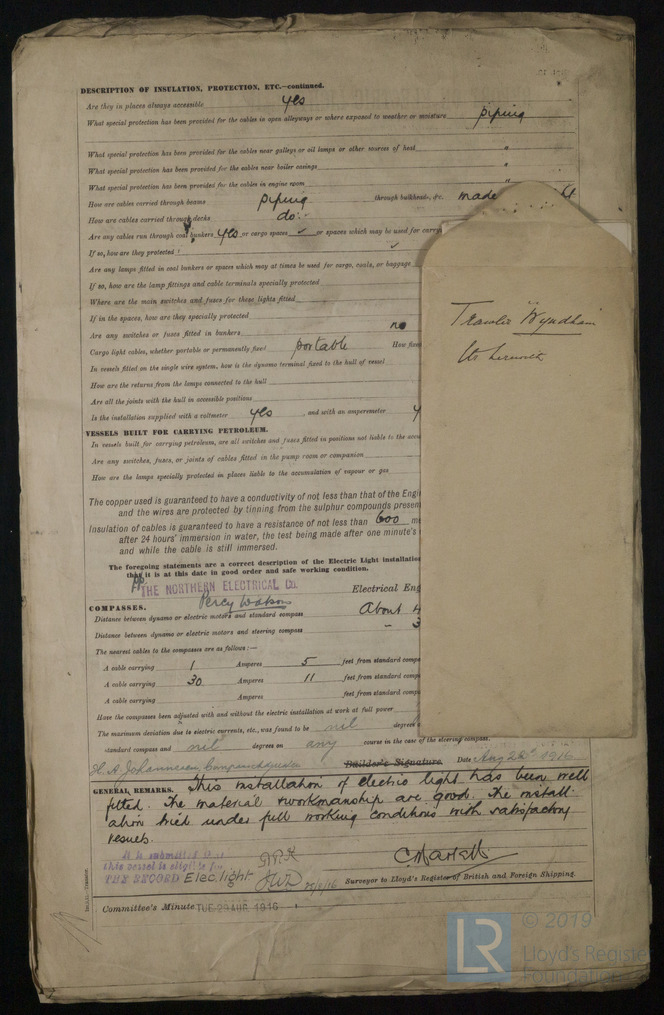 DESCRIPTION OF INSULATION, PROTECTION, ETC.—continued.
Are they in places always accessible yes
What special protection has been provided for the cables in open alleyways or where exposed to weather or moisture piping
What special protection has been provided for the cables near galleys or oil lamps or other sources of heat "
What special protection has been provided for the cables near boiler casings "
What special protection has been provided for the cables in engine room "
How are cables carried through beams piping through bulkheads, &c. made
How are cables carried through decks do.
Are any cables run through coal bunkers yes or cargo spaces ✓ or spaces which may be used for carry
If so, how are they protected ✓
Are any lamps fitted in coal bunkers or spaces which may at times be used for cargo, coals, or baggage
If so, how are the lamp fittings and cable terminals specially protected
Where are the main switches and fuses for these lights fitted
If in the spaces, how are they specially protected
Are any switches or fuses fitted in bunkers no
Cargo light cables, whether portable or permanently fixed portable How fixe
In vessels fitted on the single wire system, how is the dynamo terminal fixed to the hull of vessel
How are the returns from the lamps connected to the hull
Are all the joints with the hull in accessible positions
Is the installation supplied with a voltmeter yes , and with an amperemeter y
VESSELS BUILT FOR CARRYING PETROLEUM.
In vessels built for carrying petroleum, are all switches and fuses fitted in positions not liable to the accu
Are any switches, fuses, or joints of cables fitted in the pump room or companion
How are the lamps specially protected in places liable to the accumulation of vapour or gas
The copper used is guaranteed to have a conductivity of not less than that of the Engi
and the wires are protected by tinning from the sulphur compounds present
Insulation of cables is guaranteed to have a resistance of not less than 600 m
after 24 hours' immersion in water, the test being made after one minute's
and while the cable is still immersed.
The foregoing statements are a correct description of the Electric Light installation
that it is at this date in good order and safe working condition.
pp. THE NORTHERN ELECTRICAL Co. Electrical Eng
Percy Watson
COMPASSES.
Distance between dynamo or electric motors and standard compass About 4
Distance between dynamo or electric motors and steering compass - 3
The nearest cables to the compasses are as follows:—
A cable carrying 1 Amperes 5 feet from standard compa
A cable carrying 30 Amperes 11 feet from standard compa
A cable carrying Amperes feet from standard compa
Have the compasses been adjusted with and without the electric installation at work at full power
The maximum deviation due to electric currents, etc., was found to be nil degrees o
standard compass and nil degrees on any course in the case of the steering compass.
H. A. Johannesen, Compass Adjuster Builder's Signature. Date Aug 22nd 1916
GENERAL REMARKS. This installation of electric light has been well
fitted. The material & workmanship are good. The install-
ation tried under full working conditions with satisfactory
results.
It is submitted that
this vessel is eligible for
THE RECORD Elec. light
25/8/16
Surveyor to Lloyd's Register of British and Foreign Shipping.
Committee's Minute TUE. 29 AUG 1916
Trawler "Wyndham"
© 2019
LR
Lloyd's Register
Foundation